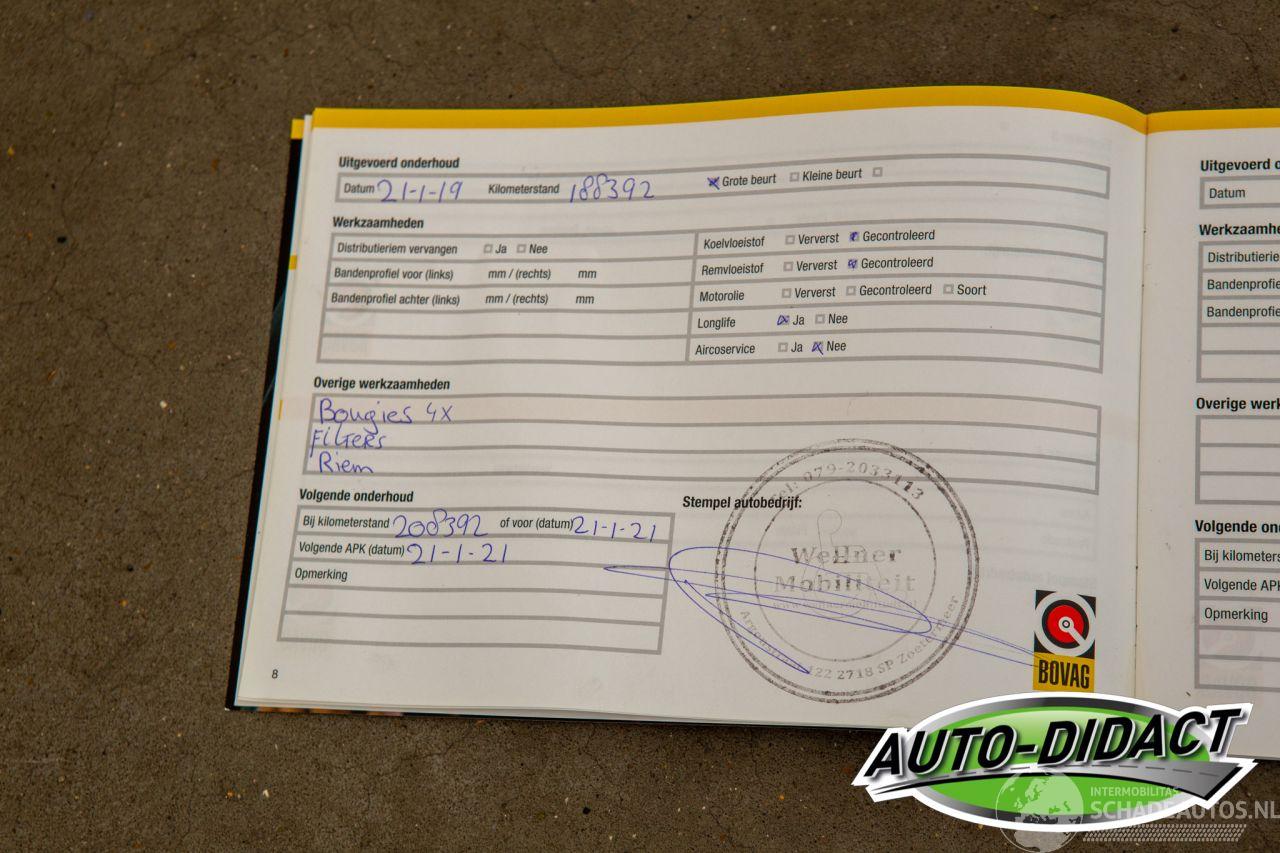 Uitgevoerd onderhoud
Datum 21-1-19 Kilometerstand 188392 Grote beurt Kleine beurt
Werkzaamheden
Distributieriem vervangen Ja Nee
Bandenprofiel voor (links) mm / (rechts) mm
Bandenprofiel achter (links) mm / (rechts) mm
Koelvloeistof Ververst Gecontroleerd
Remvloeistof Ververst Gecontroleerd
Motorolie Ververst Gecontroleerd Soort
Longlife Ja Nee
Aircoservice Ja Nee
Overige werkzaamheden
Bougies 4x
Filters
Riem
Volgende onderhoud
Bij kilometerstand 208392 of voor (datum) 21-1-21
Volgende APK (datum) 21-1-21
Opmerking
Stempel autobedrijf:
Tel: 079-2033113
Wellner
Mobiliteit
122 2718 SP Zoetermeer
BOVAG
8
Uitgevoerd o
Datum
Werkzaamhe
Distributierie
Bandenprofie
Bandenprofie
Overige werk
Volgende on
Bij kilometers
Volgende APK
Opmerking
AUTO-DIDACT
INTERMOBILITAS
SCHADEAUTOS.NL